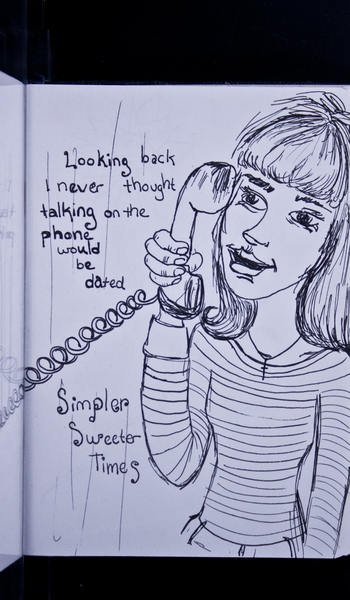 Looking back
I never thought
talking on the
phone
would
be
dated
Simpler
Sweeter
Times